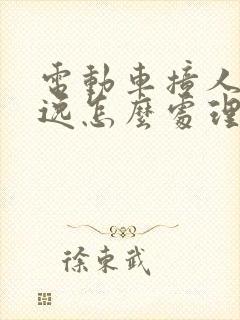 電動車撞人
逃怎麼處理
徐東武